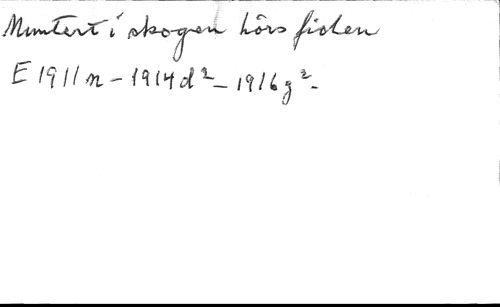 Muntert i skogen hörs fiolen
E 1911 n - 1914 d² - 1916 g² -